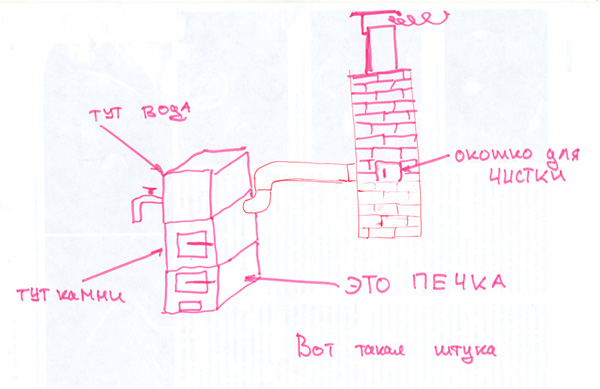 тут вода
окошко для
чистки
тут камни
это печка
Вот такая штука